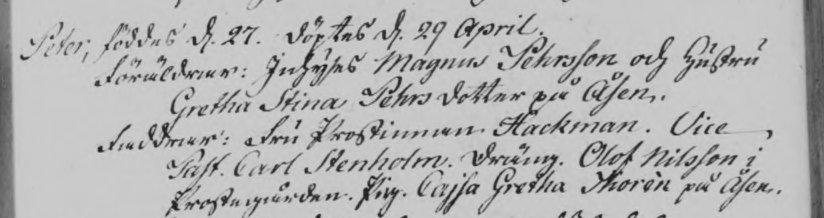 Peter, föddes d. 27. döptes d. 29 April.
Föräldrar: Inhyses Magnus Pehrsson och Hustru
Gretha Stina Pehrs dotter på Åsen.
Faddrar: Fru Prostinnan Hackman. Vice
Past. Carl Stenholm. Dräng. Olof Nilsson i
Prostegården. Pig. Cajsa Gretha Thorèn på Åsen.